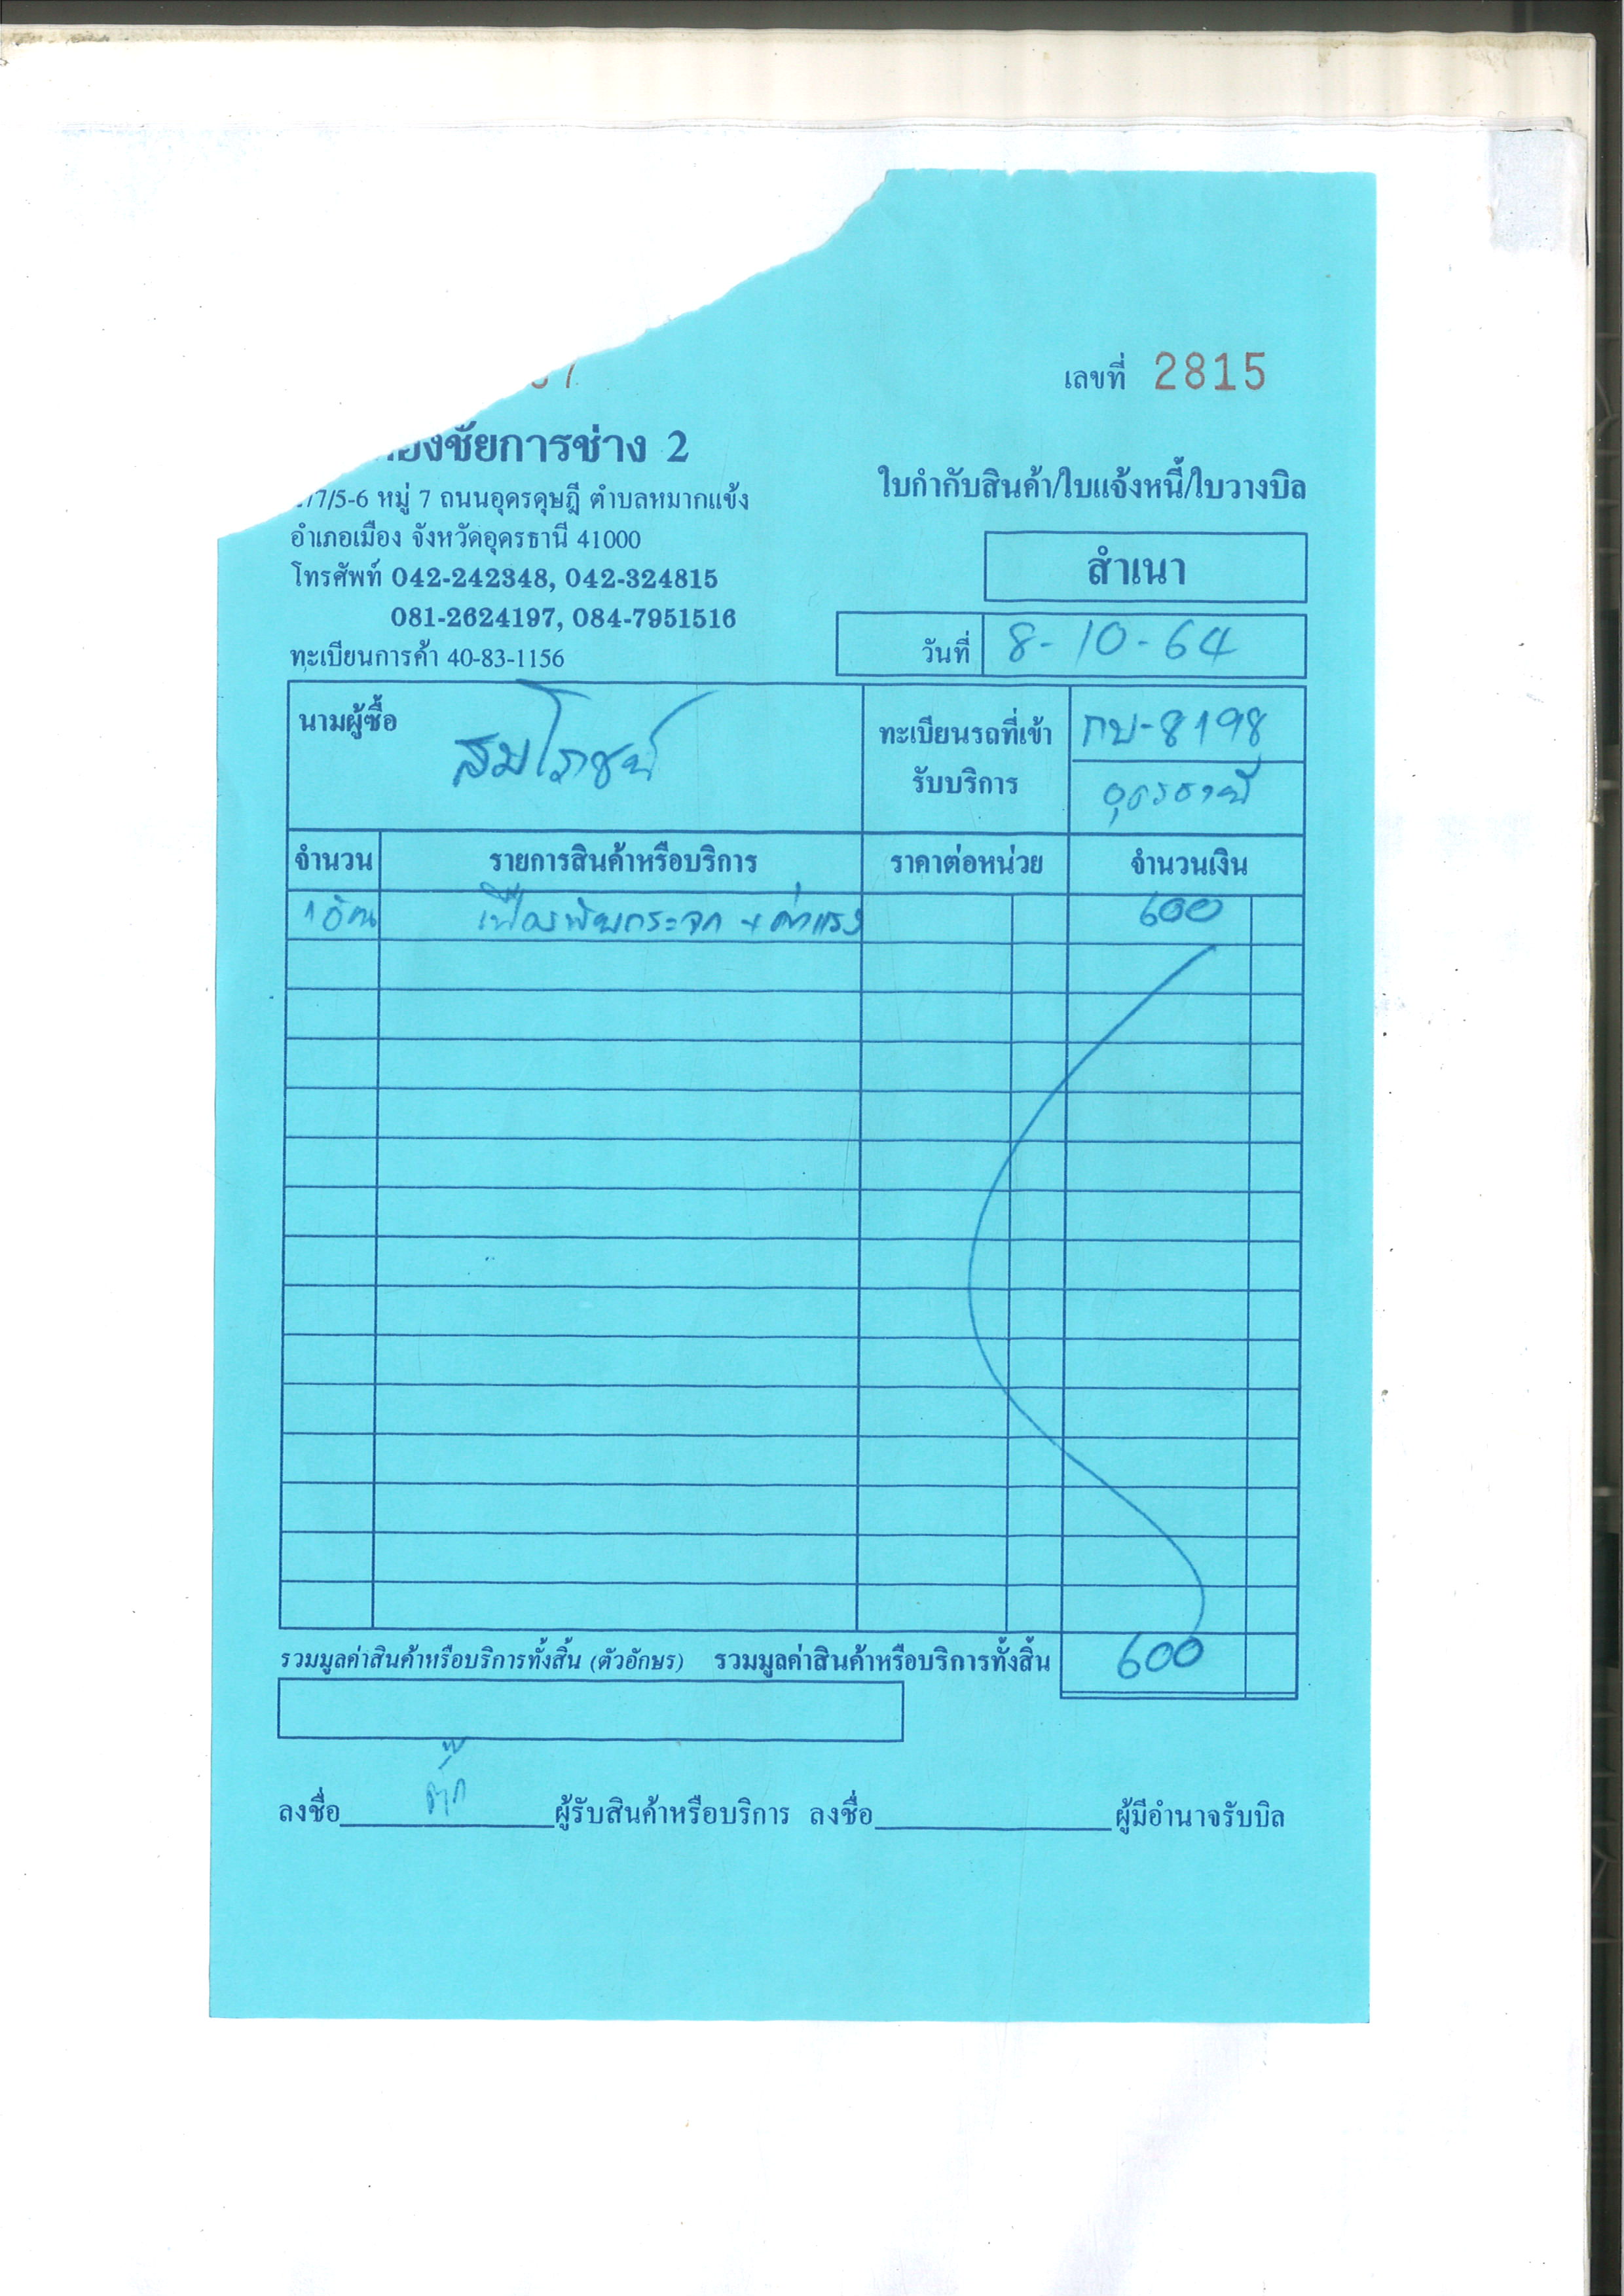 เลขที่ 2815
องชัยการช่าง 2
7/5-6 หมู่ 7 ถนนอุดรดุษฎี ตำบลหมากแข้ง
ใบกำกับสินค้า/ใบแจ้งหนี้/ใบวางบิล
อำเภอเมือง จังหวัดอุดรธานี 41000
สำเนา
โทรศัพท์ 042-242348, 042-324815
081-2624197, 084-7951516
วันที่ 8-10-64
ทะเบียนการค้า 40-83-1156
นามผู้ซื้อ สมโภชน์
ทะเบียนรถที่เข้ารับบริการ กบ-8198
อุดรธานี
จำนวน รายการสินค้าหรือบริการ ราคาต่อหน่วย จำนวนเงิน
1 อัน เฟืองพับกระจก + ค่าแรง 600
รวมมูลค่าสินค้าหรือบริการทั้งสิ้น (ตัวอักษร) รวมมูลค่าสินค้าหรือบริการทั้งสิ้น 600
ลงชื่อ ผู้รับสินค้าหรือบริการ ลงชื่อ ผู้มีอำนาจรับบิล